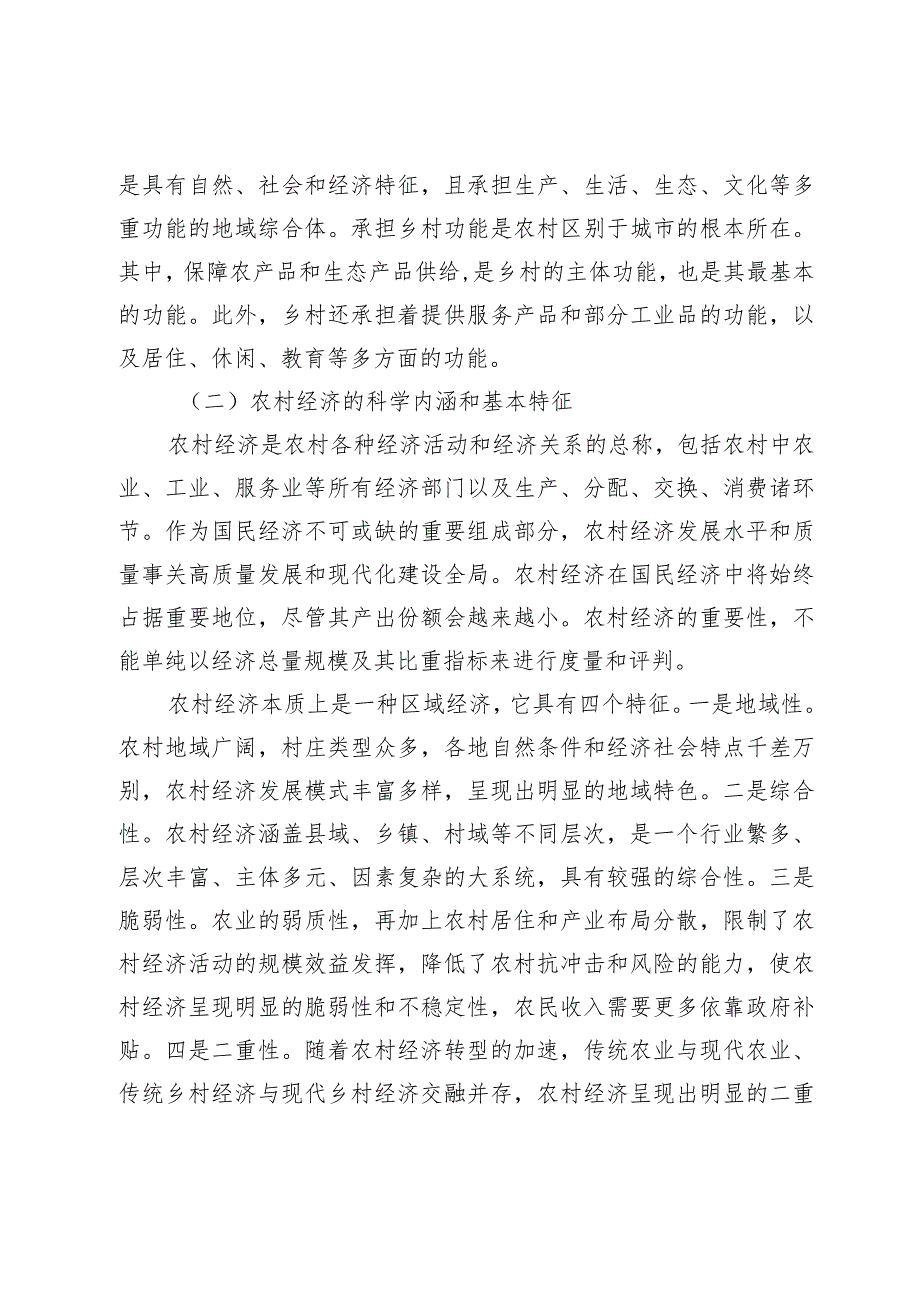 是具有自然、社会和经济特征，且承担生产、生活、生态、文化等多
重功能的地域综合体。承担乡村功能是农村区别于城市的根本所在。
其中，保障农产品和生态产品供给,是乡村的主体功能，也是其最基本
的功能。此外，乡村还承担着提供服务产品和部分工业品的功能，以
及居住、休闲、教育等多方面的功能。
（二）农村经济的科学内涵和基本特征
农村经济是农村各种经济活动和经济关系的总称，包括农村中农
业、工业、服务业等所有经济部门以及生产、分配、交换、消费诸环
节。作为国民经济不可或缺的重要组成部分，农村经济发展水平和质
量事关高质量发展和现代化建设全局。农村经济在国民经济中将始终
占据重要地位，尽管其产出份额会越来越小。农村经济的重要性，不
能单纯以经济总量规模及其比重指标来进行度量和评判。
农村经济本质上是一种区域经济，它具有四个特征。一是地域性。
农村地域广阔，村庄类型众多，各地自然条件和经济社会特点千差万
别，农村经济发展模式丰富多样，呈现出明显的地域特色。二是综合
性。农村经济涵盖县域、乡镇、村域等不同层次，是一个行业繁多、
层次丰富、主体多元、因素复杂的大系统，具有较强的综合性。三是
脆弱性。农业的弱质性，再加上农村居住和产业布局分散，限制了农
村经济活动的规模效益发挥，降低了农村抗冲击和风险的能力，使农
村经济呈现明显的脆弱性和不稳定性，农民收入需要更多依靠政府补
贴。四是二重性。随着农村经济转型的加速，传统农业与现代农业、
传统乡村经济与现代乡村经济交融并存，农村经济呈现出明显的二重